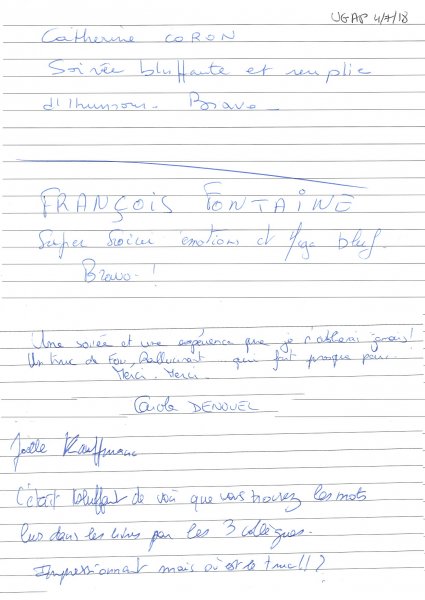 UGAP 4/7/18
Catherine CORON
Soirée bluffante et remplie
d'Humour. Bravo
FRANÇOIS FONTAINE
Super Soirée émotions et Méga bluf.
Bravo !
Une soirée et une expérience que je n'oublierai jamais!
Un truc de Fou, Hallucinant qui fait presque peur.
Merci. Merci.
Carole DENOUEL
Joëlle Kauffmann
C'était bluffant de voir que vous trouvez les mots
lus dans les livres par les 3 collègues.
Impressionnant mais où est le truc!!?